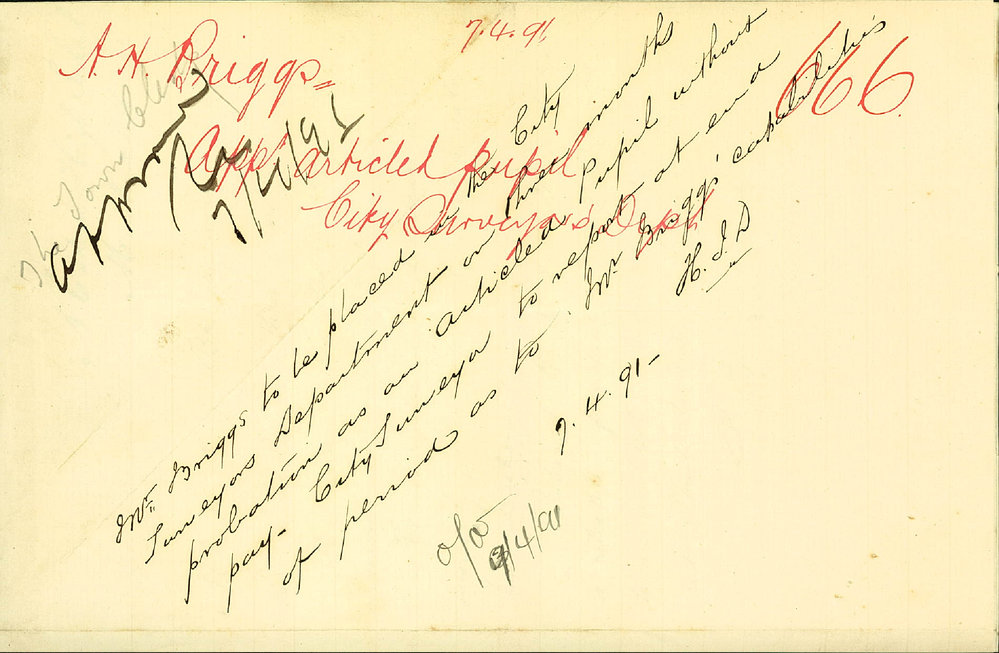 7.4.91
A. H. Briggs
666
Appn articled pupil
City Surveyor's Dept
The Town Clerk
Approved
7/4/91
Mr. Briggs to be placed in the City
Surveyors Department on three months
probation as an articled pupil without
pay. City Surveyor to report at end
of period as to Mr. Briggs' capabilities
H. I. D
7.4.91-
9/4/91